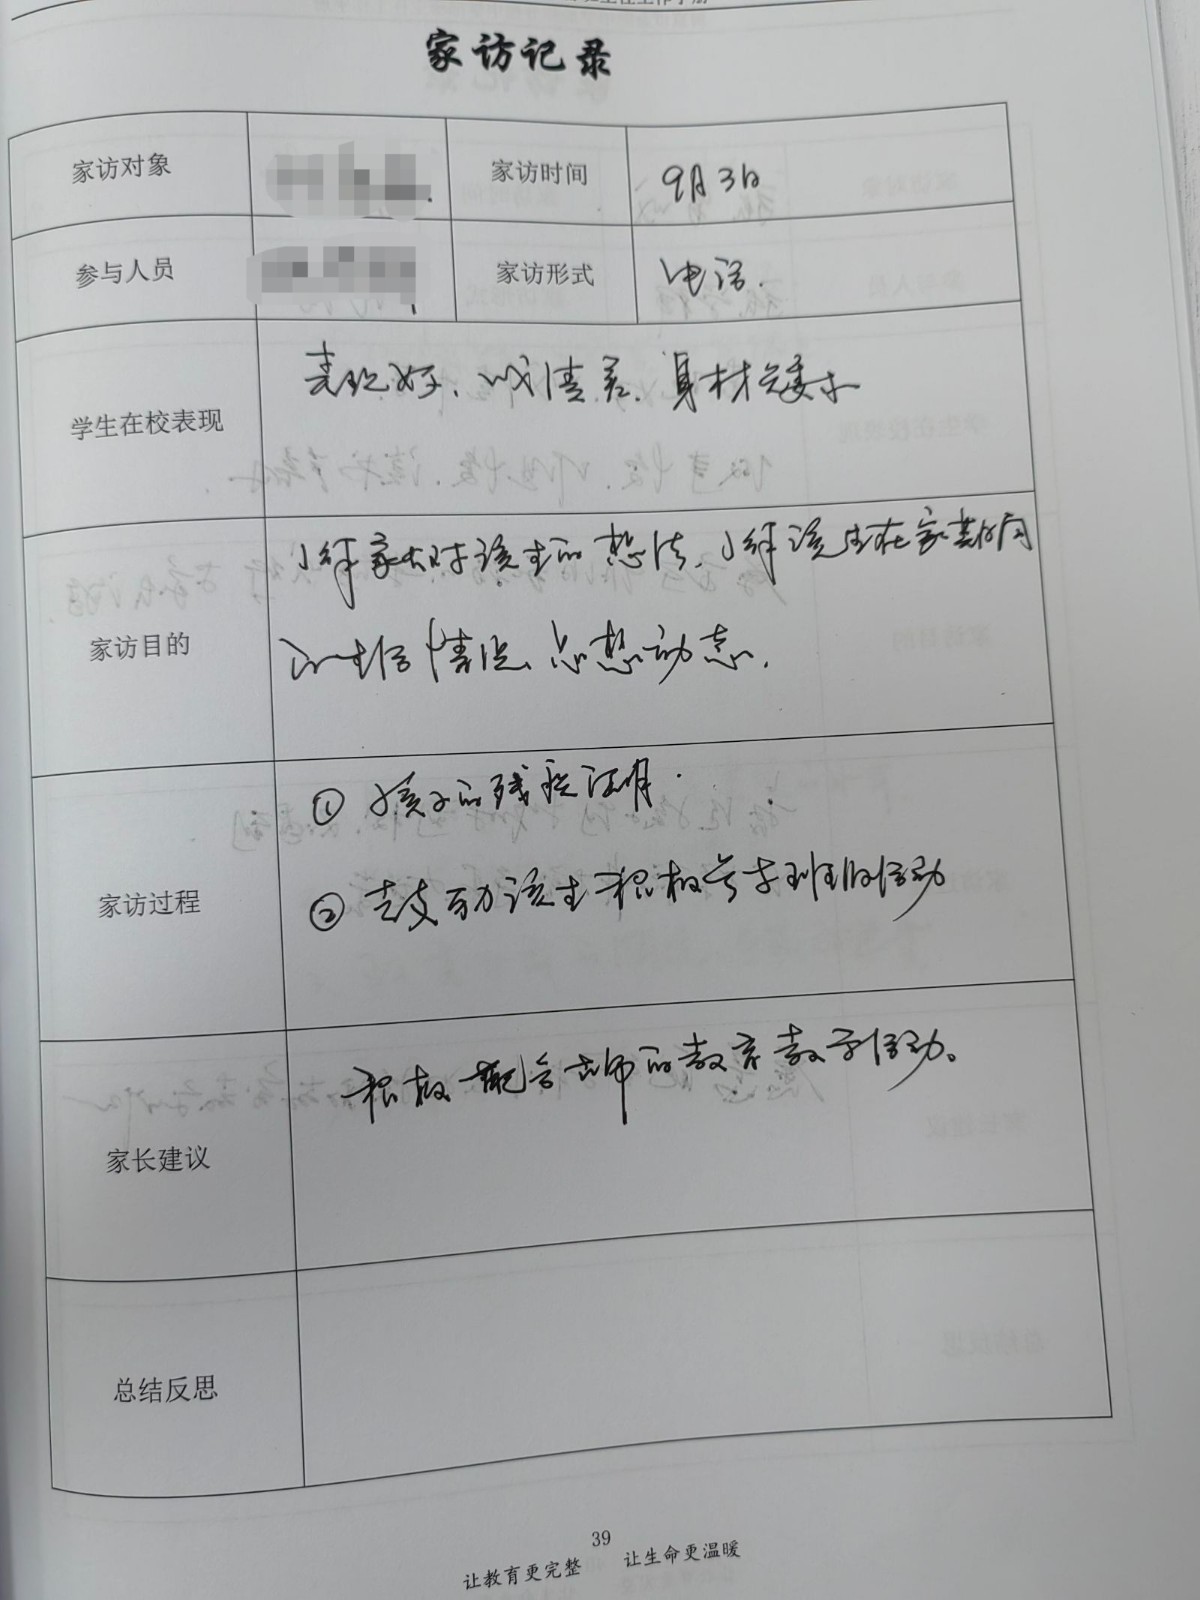 家访记录
家访对象 家访时间 9月3日
参与人员 家访形式 电话.
学生在校表现 表现好、成绩差、身材矮小
家访目的 了解家长对该生的想法、了解该生在家期间
的生活情况、思想动态.
家访过程 ① 孩子的残疾证明.
② 鼓励该生积极参与班级活动
家长建议 积极配合老师的教育教学活动。
总结反思
39
让教育更完整 让生命更温暖